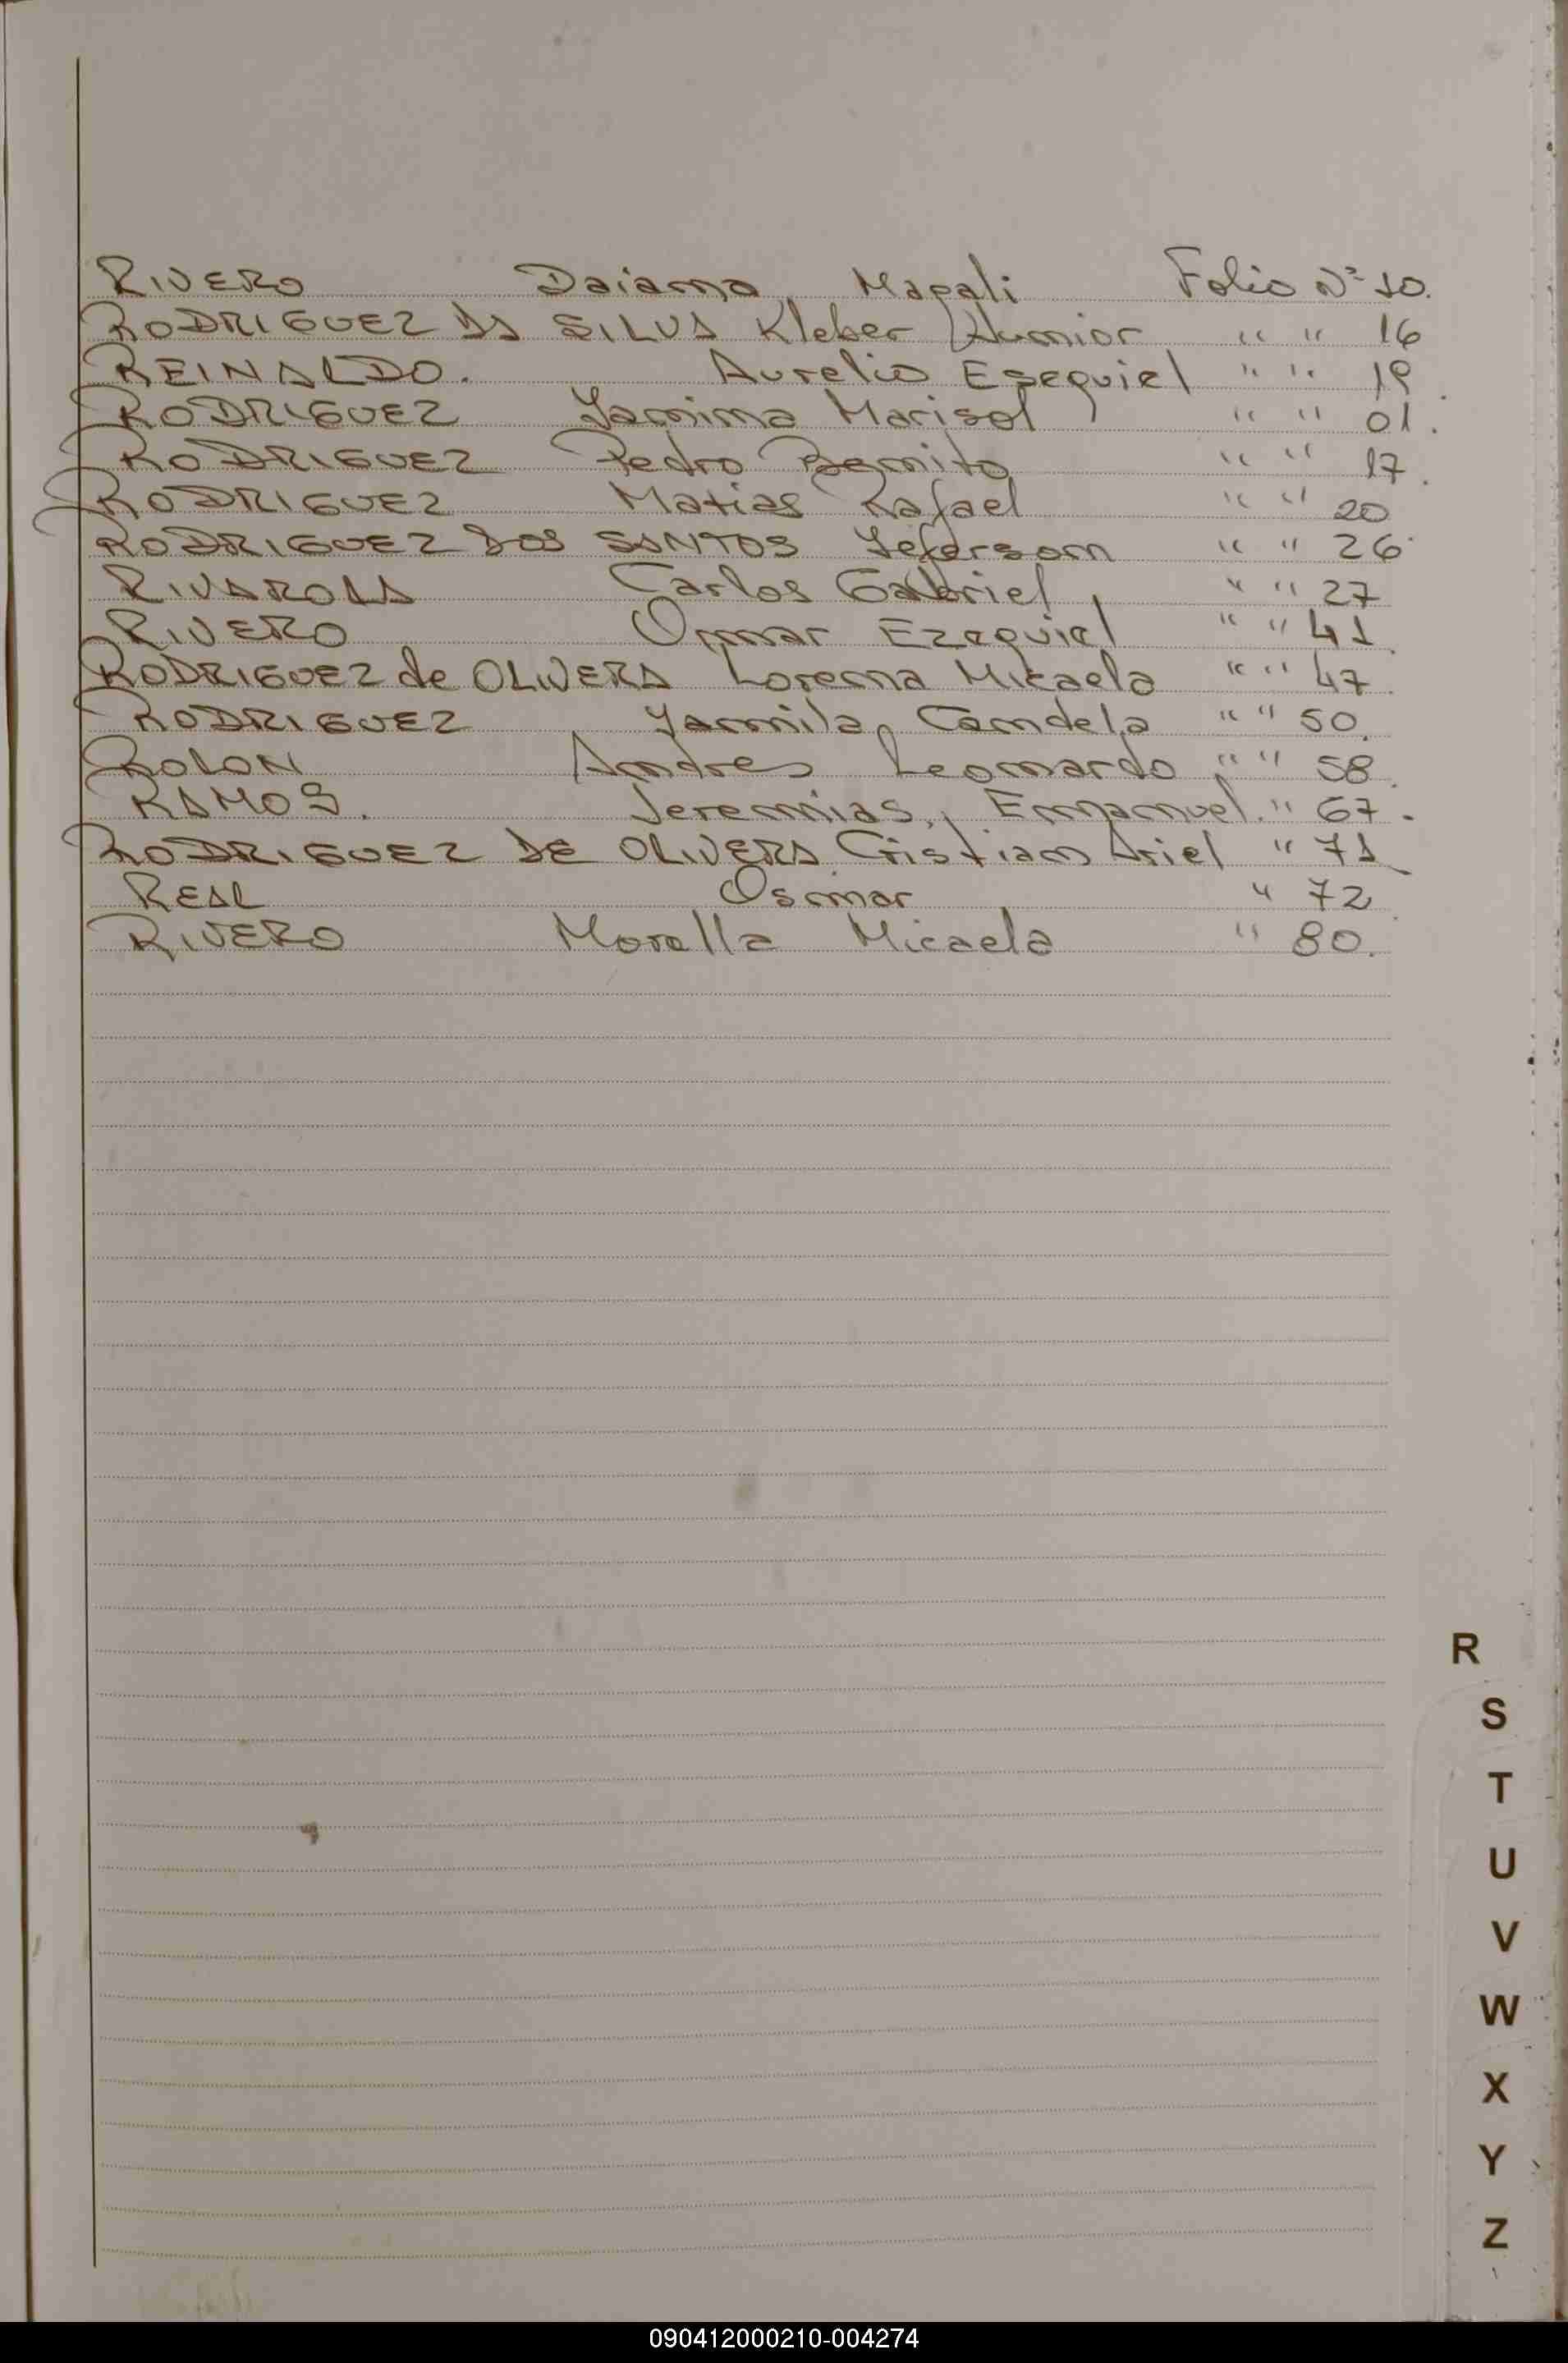 RIVERO Daiana Magali Folio Nº 10.
RODRIGUEZ DA SILVA Kleber Junior " " 16
REINALDO. Aurelio Esequiel " " 19
RODRIGUEZ Yamima Marisol " " 01.
RODRIGUEZ Pedro Benito " " 17.
RODRIGUEZ Matias Rafael " " 20
RODRIGUEZ DOS SANTOS Jeferson " " 26
RIVAROLA Carlos Gabriel " " 27
RIVERO Omar Ezequiel " " 41
RODRIGUEZ de OLIVERA Lorena Micaela " " 47.
RODRIGUEZ Yamila Candela " " 50.
ROLON Andres Leonardo " " 58.
RAMOS. Jeremias, Emanuel. " 67.
RODRIGUEZ DE OLIVERA Cristian Ariel " 71
REAL Osmar " 72
RIVERO Morella Micaela " 80.
R
S
T
U
V
W
X
Y
Z
090412000210-004274